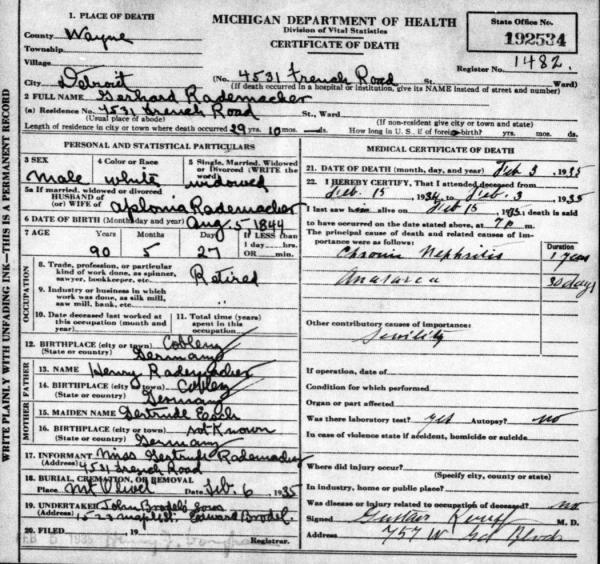 MICHIGAN DEPARTMENT OF HEALTH
Division of Vital Statistics
CERTIFICATE OF DEATH
State Office No.
192534
Register No. 1482.
1. PLACE OF DEATH
County Wayne
Township
Village
City Detroit (No. 4531 French Road St. Ward)
(If death occurred in a hospital or institution, give its NAME instead of street and number)
2 FULL NAME Gerhard Rademacher
(a) Residence No. 4531 French Road St., Ward
(Usual place of abode) (If non-resident give city or town and state)
Length of residence in city or town where death occurred 29 yrs. 10 mos. ds. How long in U. S., if of foreign birth? yrs. mos. ds.
WRITE PLAINLY WITH UNFADING INK—THIS IS A PERMANENT RECORD
PERSONAL AND STATISTICAL PARTICULARS
3 SEX male
4 Color or Race white
5 Single, Married, Widowed or Divorced (WRITE the word) widowed
5a If married, widowed or divorced
HUSBAND of
(or) WIFE of Aplonia Rademacher
6 DATE OF BIRTH (Month, day and year) Aug. 5 1844
7 AGE Years Months Day If LESS than
1 day, hrs.
OR min.
90 5 27
OCCUPATION
8. Trade, profession, or particular kind of work done, as spinner, sawyer, bookkeeper, etc. Retired
9. Industry or business in which work was done, as silk mill, saw mill, bank, etc. "
10. Date deceased last worked at this occupation (month and year)
11. Total time (years) spent in this occupation
12. BIRTHPLACE (city or town) Coblenz
(State or country) Germany
FATHER
13. NAME Henry Rademacher
14. BIRTHPLACE (city or town) Coblenz
(State or country) Germany
MOTHER
15. MAIDEN NAME Gertrude
16. BIRTHPLACE (city or town) not Known
(State or country) Germany
17. INFORMANT Miss Gertrude Rademacher
(Address) 4531 French Road
18. BURIAL, CREMATION, OR REMOVAL
Place Mt Olivet Date Feb. 6, 1935
19. UNDERTAKER John Brodel's Sons
(Address) Edward Brodel.
20. FILED , 19
Registrar.
MEDICAL CERTIFICATE OF DEATH
21. DATE OF DEATH (month, day, and year) Feb 3 1935
22. I HEREBY CERTIFY, That I attended deceased from
Feb. 15 1934, to Feb. 3, 1935
I last saw him alive on Feb 15 1935; death is said
to have occurred on the date stated above, at 7 P. m.
The principal cause of death and related causes of importance were as follows:
Duration
Chronic Nephritis 1 year
Anasarca 30 days
Other contributory causes of importance:
Senility
If operation, date of
Condition for which performed
Organ or part affected
Was there laboratory test? yes Autopsy? no
In case of violence state if accident, homicide or suicide
Where did injury occur?
(Specify city, county or state)
In industry, home or public place?
Was disease or injury related to occupation of deceased? no
Signed Gustav M. D.
Address 757 W Gd Blvd